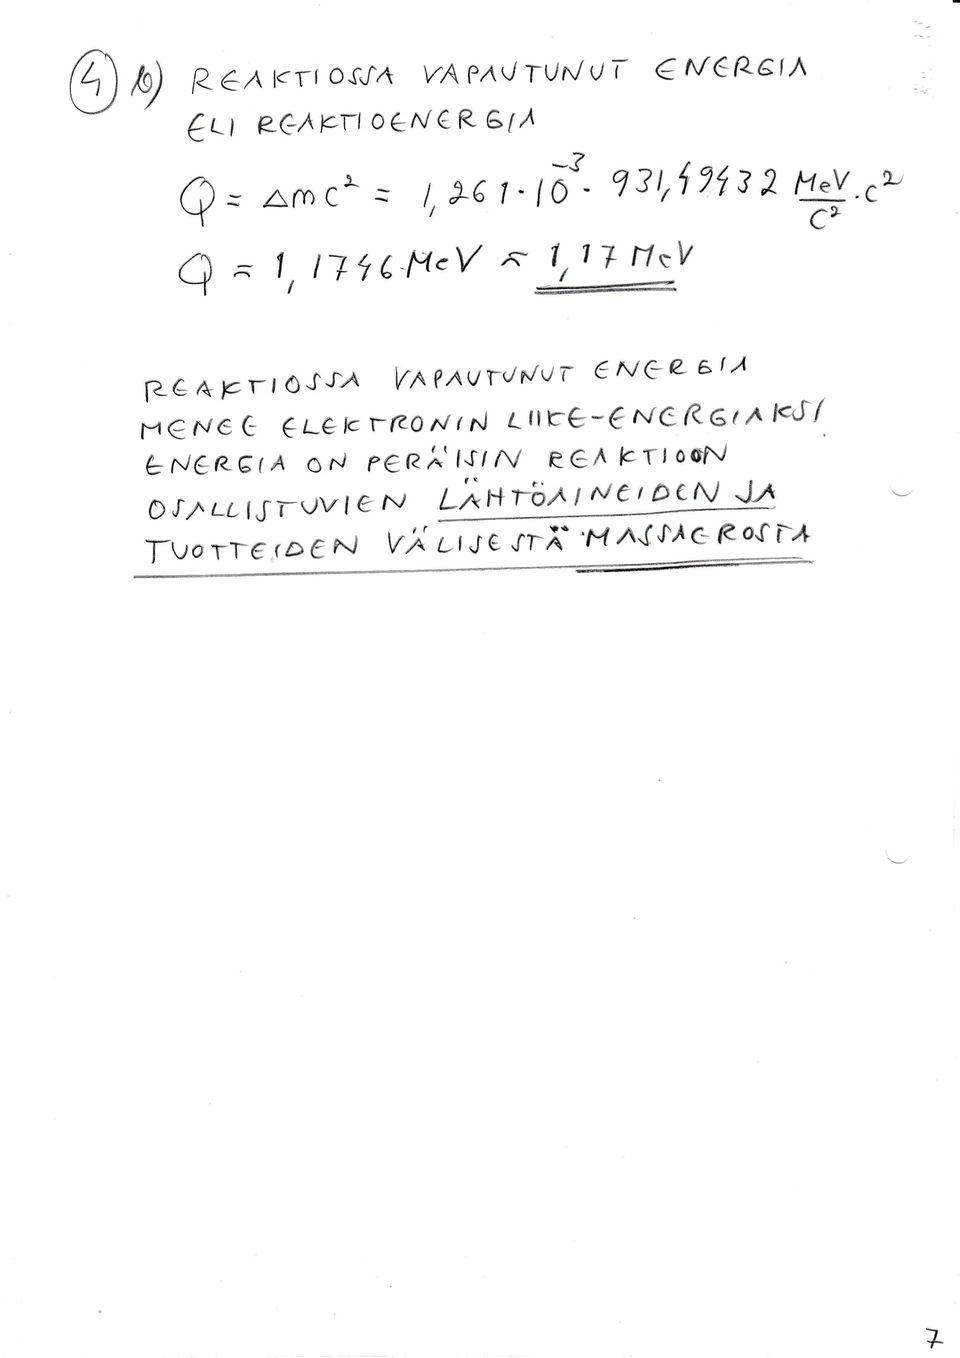 4 b) REAKTIOSSA VAPAUTUNUT ENERGIA
ELI REAKTIOENERGIA
Q = Δmc² = 1,261·10⁻³· 931,49432 MeV/c² · c²
Q ≈ 1,1746 MeV ≈ 1,17 MeV
REAKTIOSSA VAPAUTUNUT ENERGIA
MENEE ELEKTRONIN LIIKE-ENERGIAKSI
ENERGIA ON PERÄISIN REAKTIOON
OSALLISTUVIEN LÄHTÖAINEIDEN JA
TUOTTEIDEN VÄLISESTÄ MASSAEROSTA
7